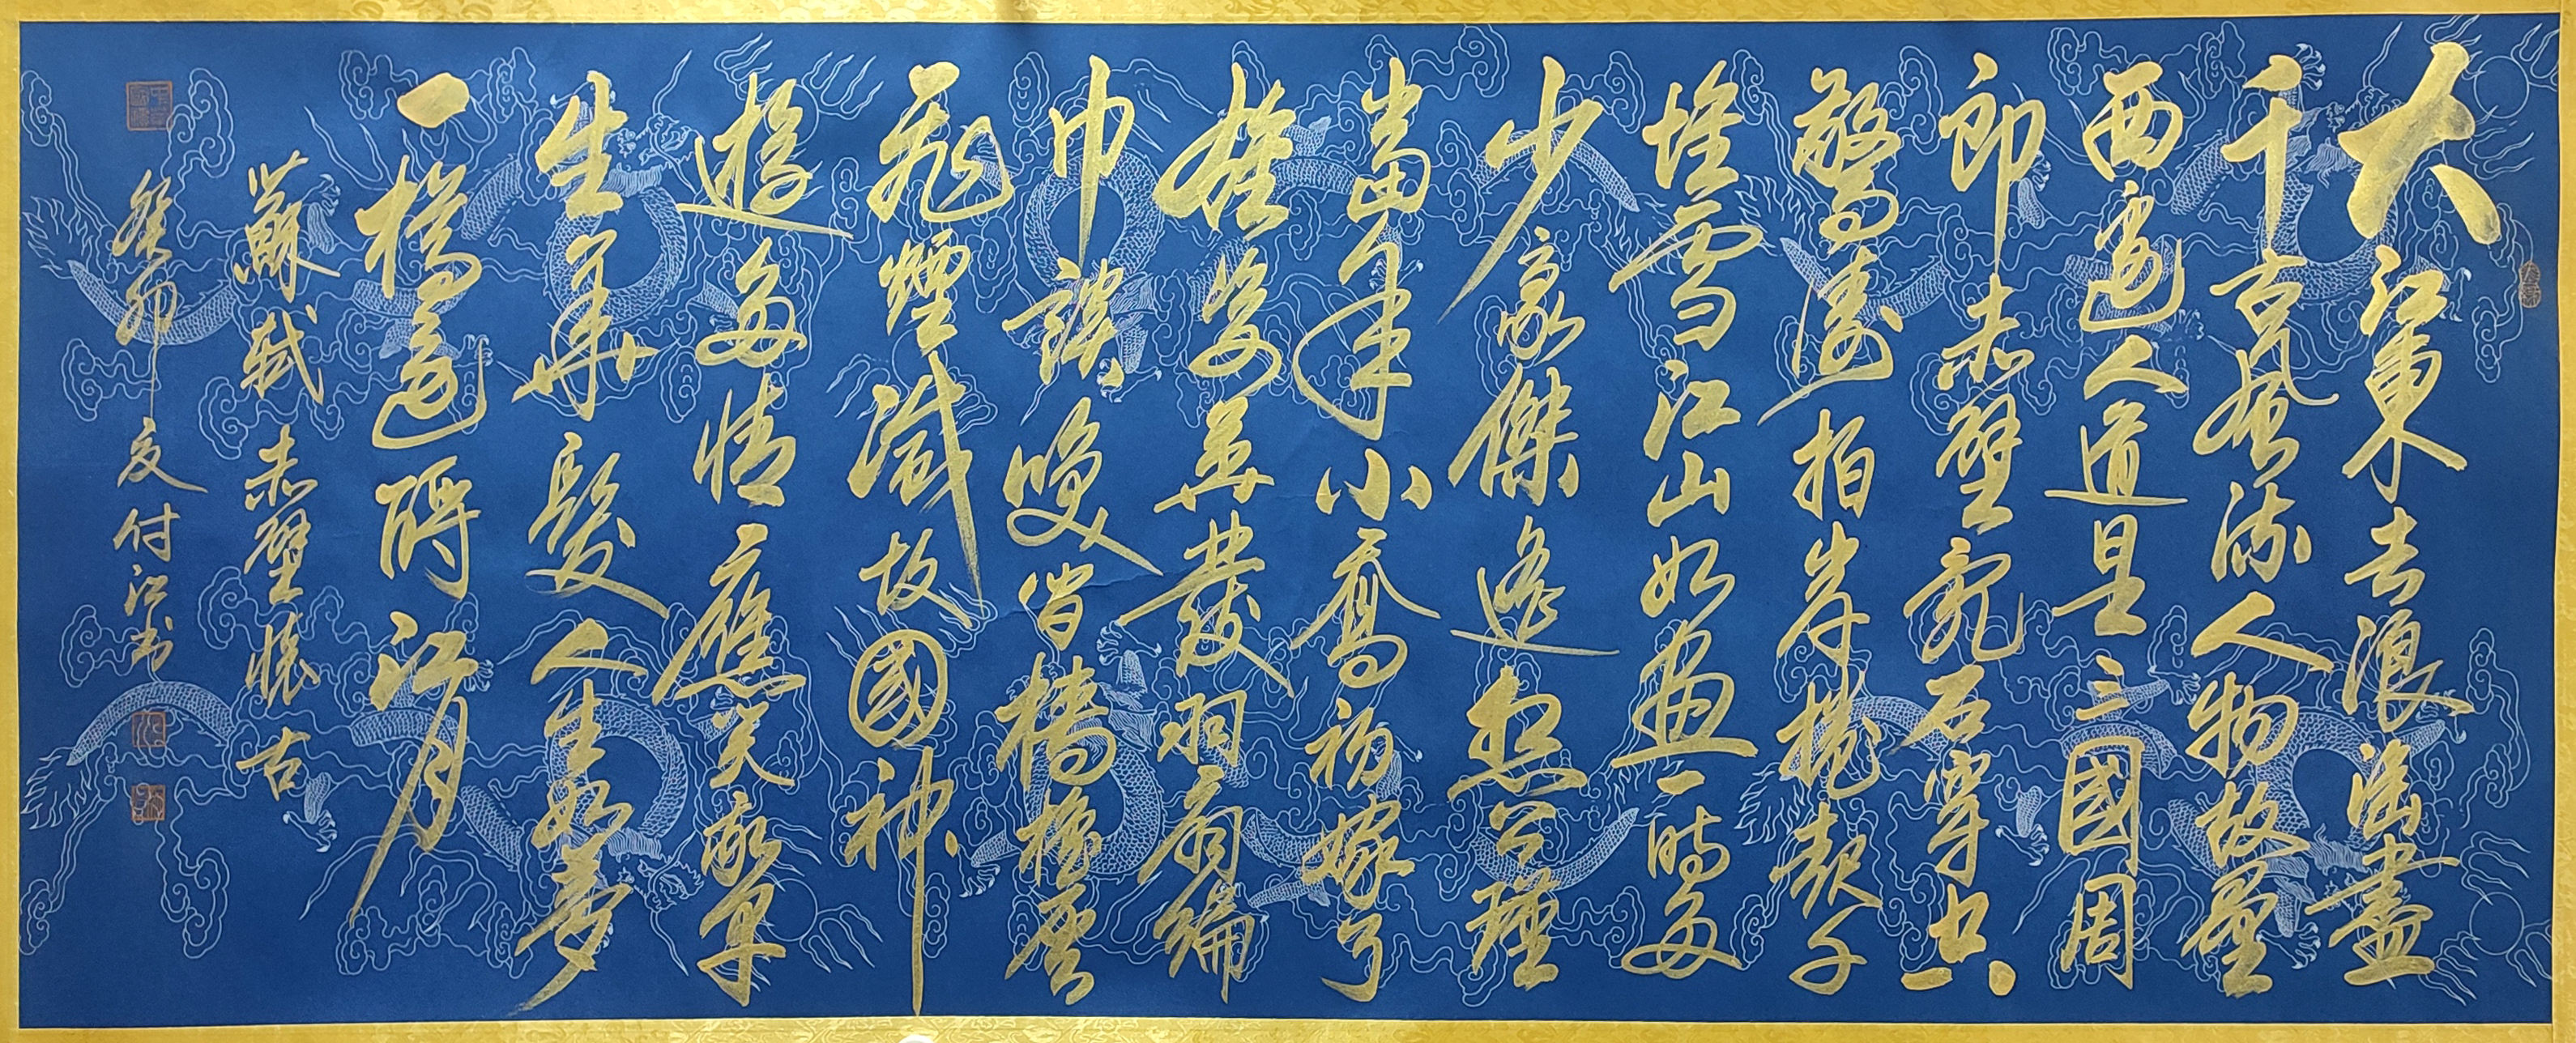 大江東去浪淘盡
千古風流人物故壘
西邊人道是三國周
郎赤壁亂石穿空
驚濤拍岸捲起千
堆雪江山如畫一時多
少豪傑遙想公瑾
當年小喬初嫁了
雄姿英發羽扇綸
巾談咲間檣櫓灰
飛煙滅故國神
遊多情應笑我早
生華髮人生如夢
一樽還酹江月
蘇軾赤壁懷古
癸卯夏付江書